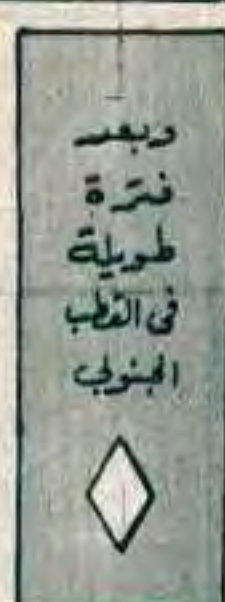 وبعد
فترة
طويلة
فى القطب
الجنوبى